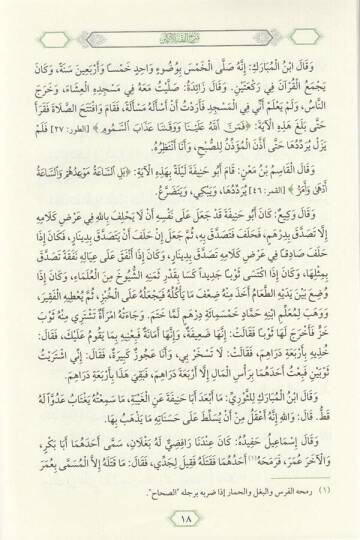 وَقَالَ ابْنُ الْمُبَارَكِ: إِنَّهُ صَلَّى الْخَمْسَ بِوُضُوءٍ وَاحِدٍ خَمْسًا وَأَرْبَعِينَ سَنَةً، وَكَانَ
يَجْمَعُ الْقُرْآنَ فِي رَكْعَتَيْنِ. وَقَالَ زَائِدَةُ: صَلَّيْتُ مَعَهُ فِي مَسْجِدِهِ الْعِشَاءَ، وَخَرَجَ
النَّاسُ، وَلَمْ يَعْلَمْ أَنِّي فِي الْمَسْجِدِ فَأَرَدْتُ أَنْ أَسْأَلَهُ مَسْأَلَةً، فَقَامَ وَافْتَتَحَ الصَّلَاةَ فَقَرَأَ
حَتَّى بَلَغَ هَذِهِ الْآيَةَ: ﴿فَمَنَّ اللَّهُ عَلَيْنَا وَوَقَانَا عَذَابَ السَّمُومِ﴾ [الطور: ٢٧] فَلَمْ
يَزَلْ يُرَدِّدُهَا حَتَّى أَذَّنَ الْمُؤَذِّنُ لِلصُّبْحِ، وَأَنَا أَنْتَظِرُهُ.
وَقَالَ الْقَاسِمُ بْنُ مَعْنٍ: قَامَ أَبُو حَنِيفَةَ لَيْلَةً بِهَذِهِ الْآيَةِ: ﴿بَلِ السَّاعَةُ مَوْعِدُهُمْ وَالسَّاعَةُ
أَدْهَى وَأَمَرُّ﴾ [القمر: ٤٦] يُرَدِّدُهَا، وَيَبْكِي، وَيَتَضَرَّعُ.
وَقَالَ وَكِيعٌ: كَانَ أَبُو حَنِيفَةَ قَدْ جَعَلَ عَلَى نَفْسِهِ أَنْ لَا يَحْلِفَ بِاللهِ فِي عَرْضِ كَلَامِهِ
إِلَّا تَصَدَّقَ بِدِرْهَمٍ، فَحَلَفَ فَتَصَدَّقَ بِهِ، ثُمَّ جَعَلَ إِنْ حَلَفَ أَنْ يَتَصَدَّقَ بِدِينَارٍ، فَكَانَ إِذَا
حَلَفَ صَادِقًا فِي عَرْضِ كَلَامِهِ تَصَدَّقَ بِدِينَارٍ، وَكَانَ إِذَا أَنْفَقَ عَلَى عِيَالِهِ نَفَقَةً تَصَدَّقَ
بِمِثْلِهَا، وَكَانَ إِذَا اكْتَسَى ثَوْبًا جَدِيدًا كَسَا بِقَدْرِ ثَمَنِهِ الشُّيُوخَ مِنَ الْعُلَمَاءِ، وَكَانَ إِذَا
وُضِعَ بَيْنَ يَدَيْهِ الطَّعَامُ أَخَذَ مِنْهُ ضِعْفَ مَا يَأْكُلُهُ فَيَجْعَلُهُ عَلَى الْخُبْزِ، ثُمَّ يُعْطِيهِ الْفَقِيرَ،
وَوَهَبَ لِمُعَلِّمِ ابْنِهِ حَمَّادٍ خَمْسَمِائَةِ دِرْهَمٍ لَمَّا خَتَمَ. وَجَاءَتْهُ امْرَأَةٌ تَشْتَرِي مِنْهُ ثَوْبَ
خَزٍّ فَأَخْرَجَ لَهَا ثَوْبًا فَقَالَتْ: إِنَّهَا ضَعِيفَةٌ، وَإِنَّهَا أَمَانَةٌ فَبِعْنِيهِ بِمَا يَقُومُ عَلَيْكَ، فَقَالَ:
خُذِيهِ بِأَرْبَعَةِ دَرَاهِمَ، فَقَالَتْ: لَا تَسْخَرْ بِي، وَأَنَا عَجُوزٌ كَبِيرَةٌ، فَقَالَ: إِنِّي اشْتَرَيْتُ
ثَوْبَيْنِ فَبِعْتُ أَحَدَهُمَا بِرَأْسِ الْمَالِ إِلَّا أَرْبَعَةَ دَرَاهِمَ، فَبَقِيَ هَذَا بِأَرْبَعَةِ دَرَاهِمَ.
وَقَالَ ابْنُ الْمُبَارَكِ لِلثَّوْرِيِّ: مَا أَبْعَدَ أَبَا حَنِيفَةَ عَنِ الْغَيْبَةِ، مَا سَمِعْتُهُ يَغْتَابُ عَدُوًّا لَهُ
قَطُّ. قَالَ: وَاللهِ إِنَّهُ أَعْقَلُ مِنْ أَنْ يُسَلِّطَ عَلَى حَسَنَاتِهِ مَا يَذْهَبُ بِهَا.
وَقَالَ إِسْمَاعِيلُ حَفِيدُهُ: كَانَ عِنْدَنَا رَافِضِيٌّ لَهُ بَغْلَانِ، سَمَّى أَحَدَهُمَا أَبَا بَكْرٍ،
وَالْآخَرَ عُمَرَ، فَرَمَحَهُ(١) أَحَدُهُمَا فَقَتَلَهُ فَقِيلَ لِجَدِّي، فَقَالَ: مَا قَتَلَهُ إِلَّا الْمُسَمَّى بِعُمَرَ
(١) رمحه الفرس والبغل والحمار إذا ضربه برجله "الصحاح".
١٨